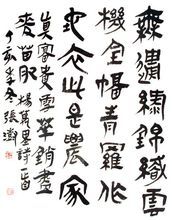 無邊綠錦織雲
機全幅青羅作
地衣此是農家
真富貴雪華銷盡
麥苗肥 楊萬里詩一首
丁亥年冬 張